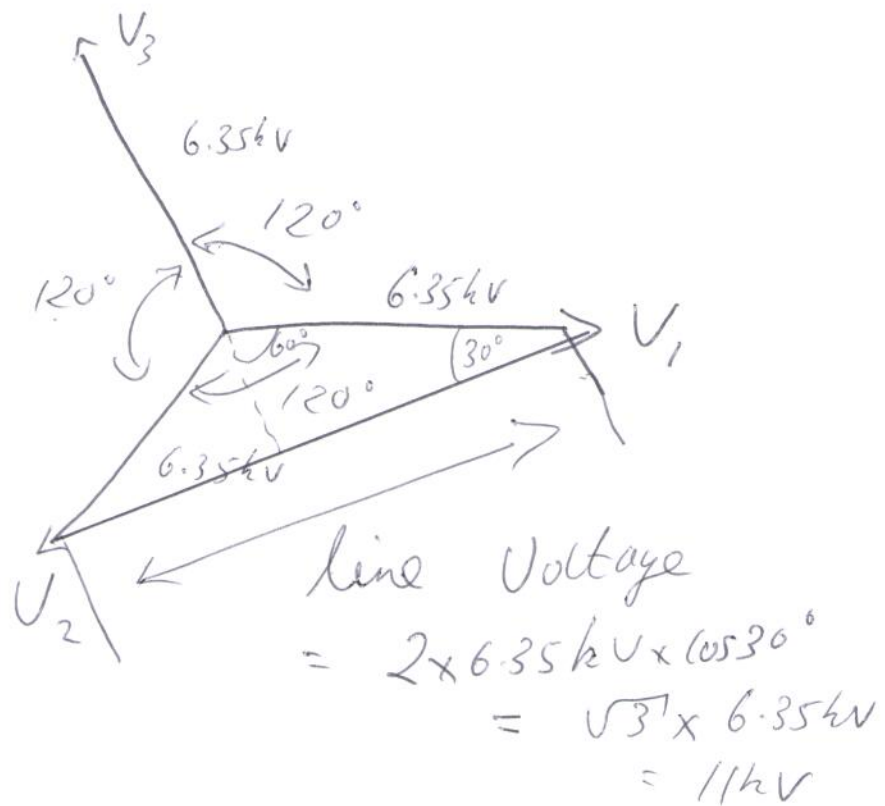 V₃
6.35kV
120°
120°
6.35kV
V₁
60°
30°
120°
6.35kV
V₂
line Voltage
= 2×6.35kV×cos30°
= √3 × 6.35kV
= 11kV